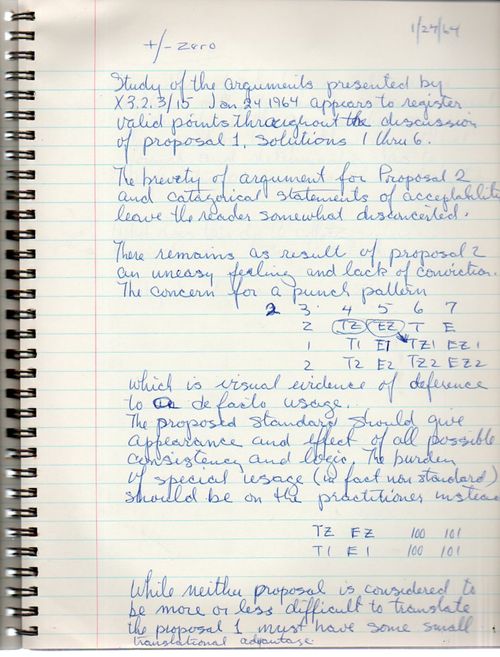 1/27/64
+/- Zero
Study of the arguments presented by
X3.2.3/15 Jan 24 1964 appears to register
valid points throughout the discussion
of proposal 1, solutions 1 thru 6.
The brevity of argument for Proposal 2
and catagorical statements of acceptability
leave the reader somewhat disconcerted.
There remains as result of proposal 2
an uneasy feeling and lack of conviction.
The concern for a punch pattern
2 3 4 5 6 7
2 TZ EZ T E
1 T1 E1 TZ1 EZ1
2 T2 E2 TZ2 EZ2
which is visual evidence of deference
to a defacto usage.
The proposed standard should give
appearance and effect of all possible
consistency and logic. The burden
of special usage (in fact non standard)
should be on the practitioner instead
TZ EZ 100 101
T1 E1 100 101
While neither proposal is considered to
be more or less difficult to translate
the proposal 1 must have some small
translational advantage.